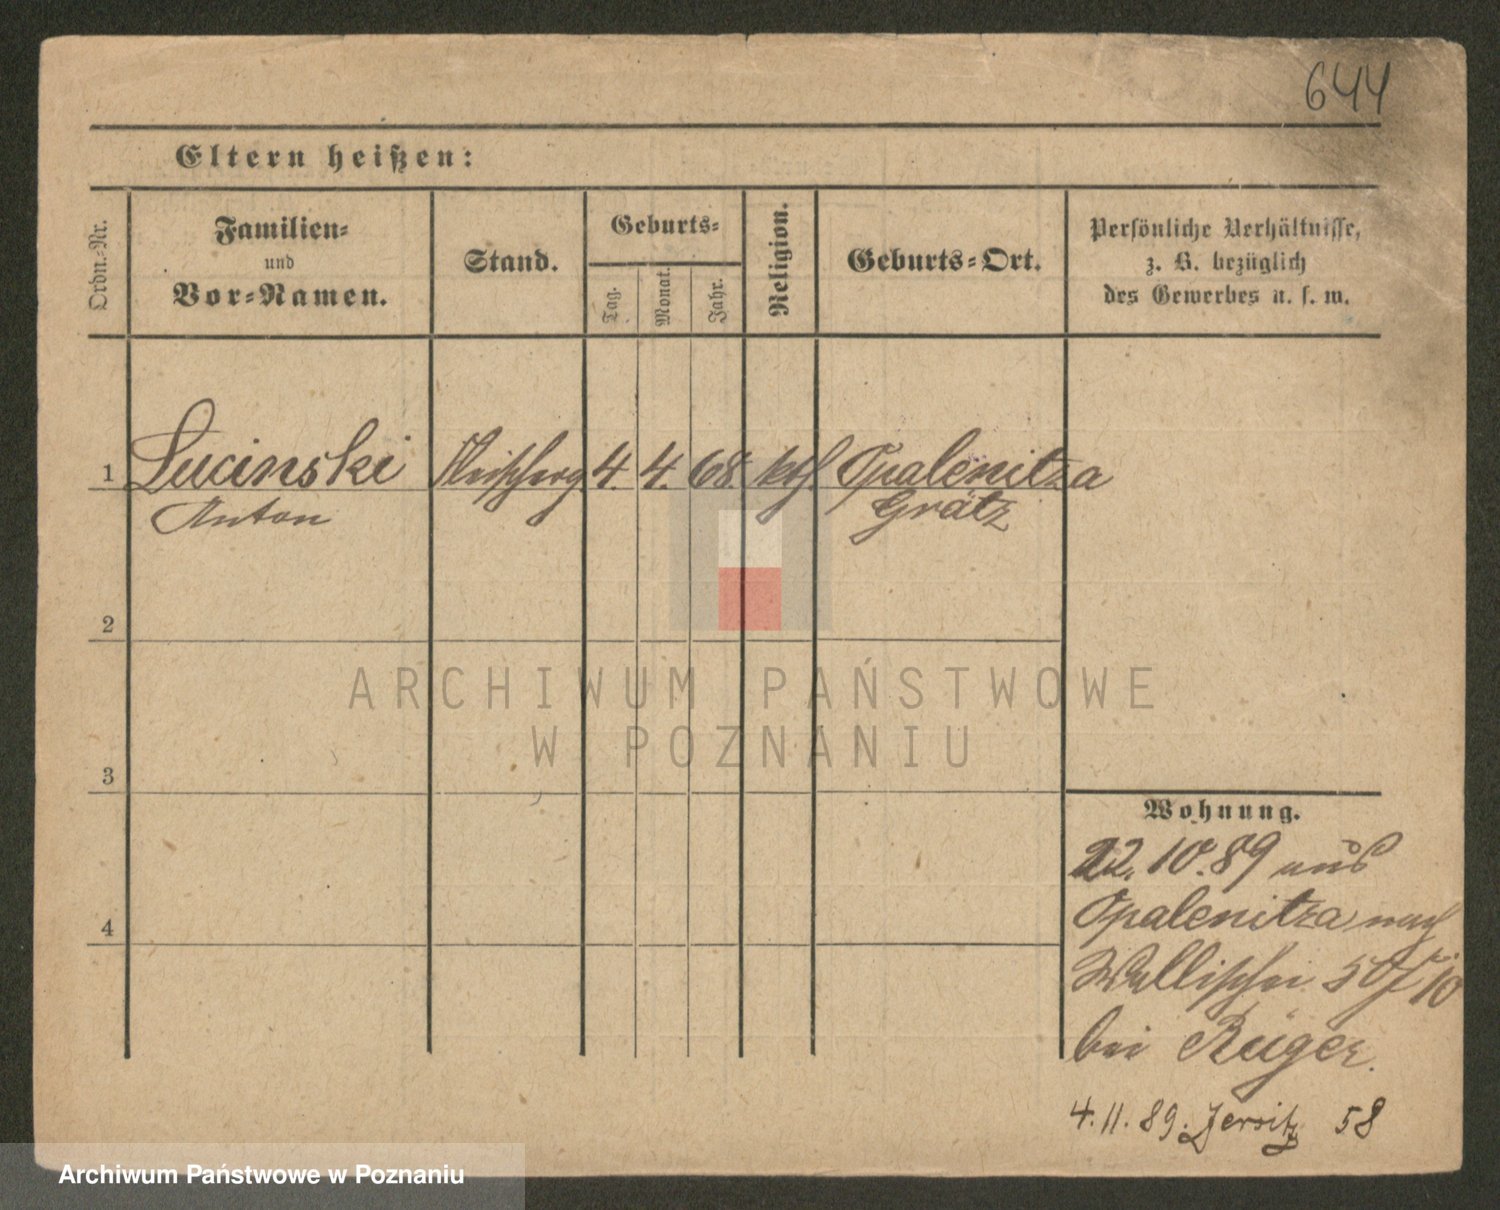 644
Eltern heißen:
Ordn.-Nr.
Familien-
und
Vor-Namen.
Stand.
Geburts-
Tag.
Monat.
Jahr.
Religion.
Geburts-Ort.
Persönliche Verhältnisse,
z. B. bezüglich
des Gewerbes u. s. w.
1 Lucinski 4. 4. 68. kth. Opalenitza
Anton Grätz
2
3
4
ARCHIWUM PAŃSTWOWE
W POZNANIU
Wohnung.
22. 10. 89 aus
Opalenitza nach
Wallischei
bei Rüger.
4. 11. 89. Jersitz 58
Archiwum Państwowe w Poznaniu